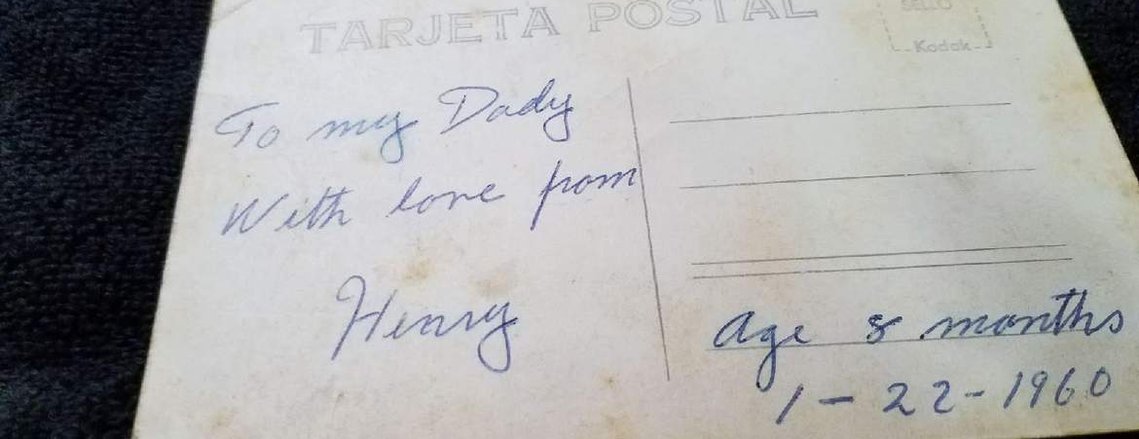 TARJETA POSTAL
SELLO
Kodak
To my Dady
With love from
Henry
age 8 months
1-22-1960